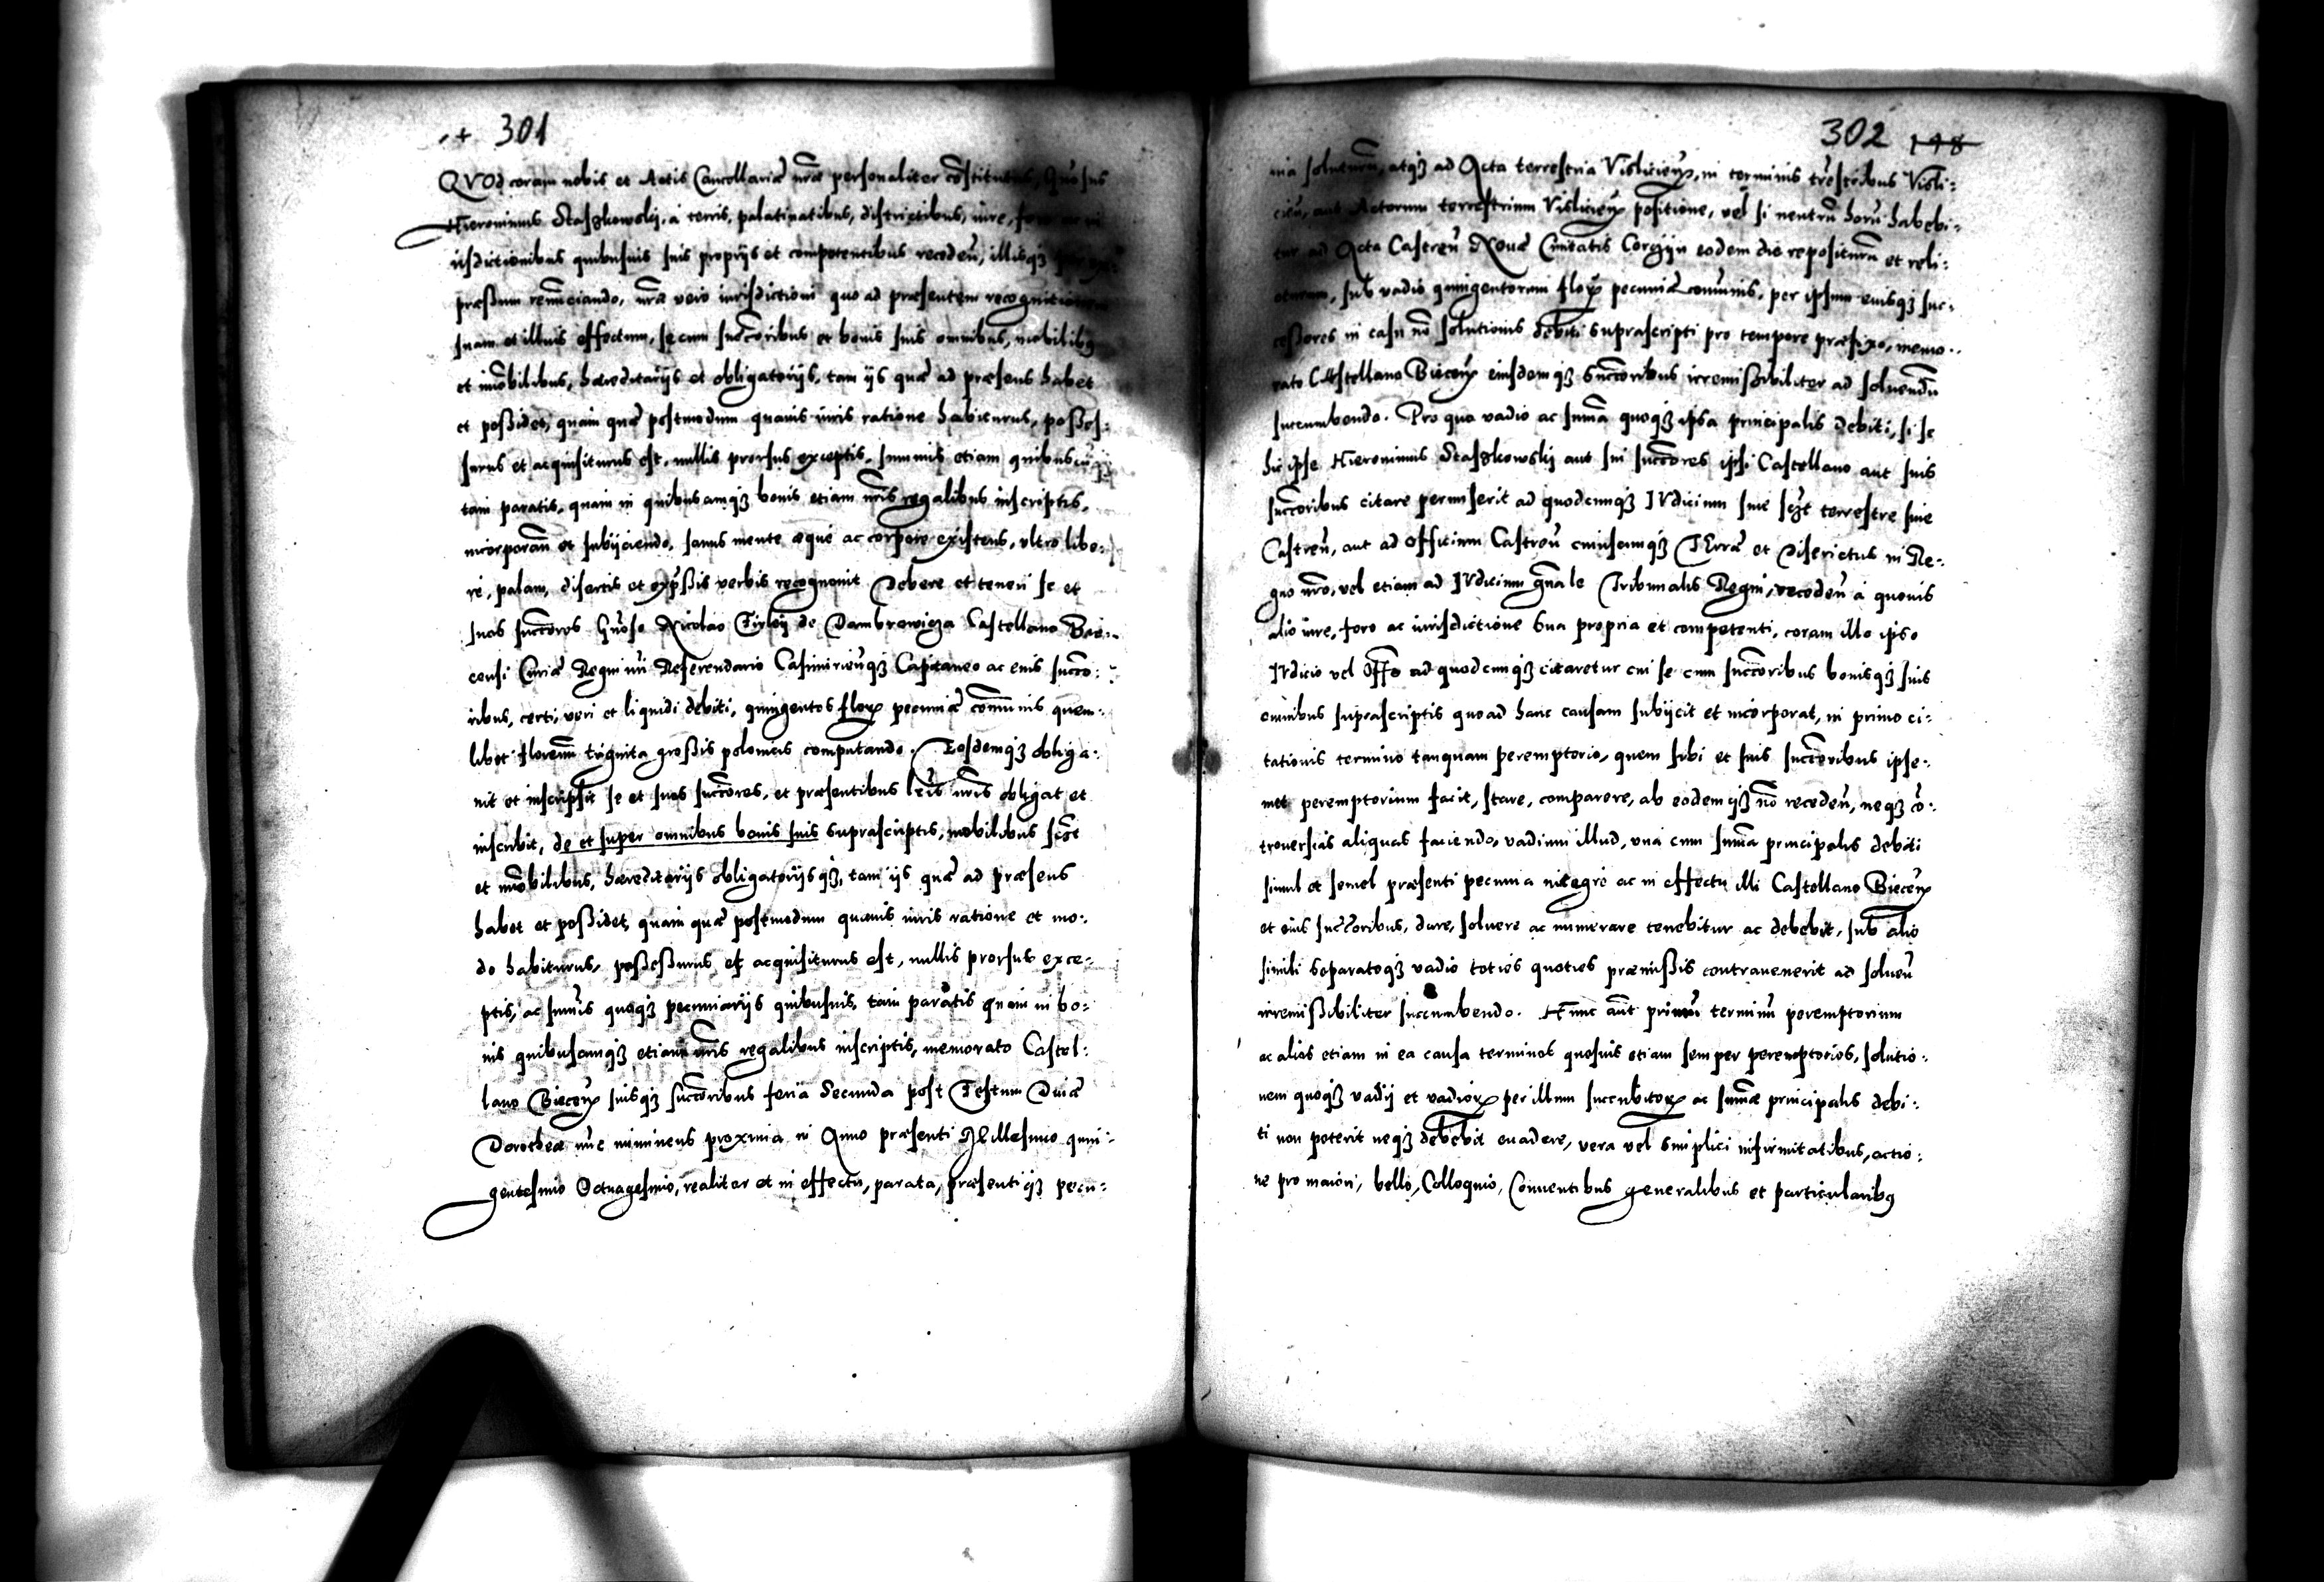 301
QVOd coram nobis et Actis Cancellariæ nræ personaliter cõstitutus, Gnosus
Hieronimus Staszkowskÿ, a terris, palatinatibus, districtibus, iure,
risdictionibus quibusuis suis proprijs et competentibus receden̄, illisqȝ
præsṽm renũciando, nræ vero iurisdictioni quo ad præsentem recognitionem
suam et illius effectum, se cum succ̃oribus et bonis suis omnibus, mobilibꝯ
et im̃obilibus, hæreditarijs et obligatorijs, tam ijs quæ ad præsens habet
et poßidet, quam quæ postmodum quauis iuris ratione habiturus, poßes:
surus et acquisiturus est, nullis prorsus exceptis, summis etiam quibuscũqȝ
tam paratis, quam in quibuscumqȝ bonis etiam nr̃is regalibus inscriptis,
incorporan̄ et subijciendo, sanus mente æque ac corpore existens, vltro libe:
re, palam, disertis et exp̃ßis verbis recognouit Debere et teneri se et
suos succ̃ores Gnõso Nicolao Firleÿ de Dambrowicza Castellano Bie:
censi Curiæ Regni nr̃i Referendario Casimirien̄qȝ Capitaneo ac eius succ̃o:
ribus, certi, veri et liquidi debiti, quingentos floꝝ pecuniæ com̃unis quem:
libet florenũ triginta großis polonicis computando. Eosdemqȝ obliga:
uit et inscripsit se et suos succ̃ores, et præsentibus lr̃is nr̃is obligat et
inscribit, de et super omnibus bonis suis suprascriptis, mobilibus sczt
et im̃obilibus, hæreditarijs obligatorijsqȝ, tam ijs quæ ad præsens
habet et poßidet, quam quæ postmodum quauis iuris ratione et mo:
do habiturus, poßeßurus et acquisiturus est, nullis prorsus exce:
ptis, ac sum̃is quoqȝ pecuniarijs quibusuis, tam paratis quam in bo:
nis quibuscumqȝ etiam nr̃is regalibus inscriptis, memorato Castel:
lano Biecen̄ suisqȝ succ̃oribus feria Secunda post Festum Diuæ
Dorotheæ nũc imminens proxima in Anno præsenti Millesimo quin:
gentesimo Octuagesimo, realiter et in effectu, parata, præsentiqȝ pecu:
302 198
nia soluturum, atqȝ ad Acta terrestria Vislicien̄, in terminis tr̃estribus Visli:
cien̄, aut Actorum terrestrium Vislicien̄ positione, vel si neutrũ horũ habebi:
tur ad Acta Castren̄ Nouæ Ciuitatis Corczÿn eodem die repositurũ et reli:
cturum, sub vadio quingentorum floꝝ pecuniæ com̃unis, per ipsum eiusqȝ suc:
ceßores in casu nõ solutionis debiti suprascripti pro tempore præfixo, memo:
rato Castellano Biecen̄ eiusdemqȝ succ̃oribus irremißibiliter ad soluendũ
succumbendo. Pro quo vadio ac sum̃a quoqȝ ipsa principalis debiti, si se
hic ipse Hieronimus Staszkowskÿ aut sui succ̃ores ipsi Castellano aut suis
succ̃oribus citare permiserit ad quodcumqȝ IVdicium siue sczt terrestre siue
Castren̄, aut ad officium Castren̄ cuiuscumqȝ TErræ et Districtus in Re:
gno nr̃o, vel etiam ad IVdicium gñale Tribunalis Regni, receden̄ a quouis
alio iure, foro ac iurisdictione sua propria et competenti, coram illo ipso
IVdicio vel Offo ad quodcumqȝ citaretur cui se cum succ̃oribus bonisqȝ suis
omnibus suprascriptis quoad hanc causam subijcit et incorporat, in primo ci:
tationis termino tanquam peremptorio, quem sibi et suis succ̃oribus ipse:
met peremptorium facit, stare, comparere, ab eodemqȝ nõ receden̄, neqȝ cõ:
trouersias aliquas faciendo, vadium illud, vna cum sum̃a principalis debiti
simul et semel præsenti pecunia integre ac in effectu illi Castellano Biecen̄
et eius succ̃oribus, dare, soluere ac numerare tenebitur ac debebit, sub alio
simili separatoqȝ vadio toties quoties præmißis contrauenerit ad soluen̄
irremißibiliter succumbendo. Hunc aũt primũ terminũ peremptorium
ac alios etiam in ea causa terminos quosuis etiam semper peremptorios, solutio:
nem quoqȝ vadij et vadioꝝ per illum succubitoꝝ ac sum̃æ principalis debi:
ti non poterit neqȝ debebit euadere, vera vel simplici infirmitatibus, actio:
ne pro maiori, bello, Colloquio, Conuentibus generalibus et particularibꝯ